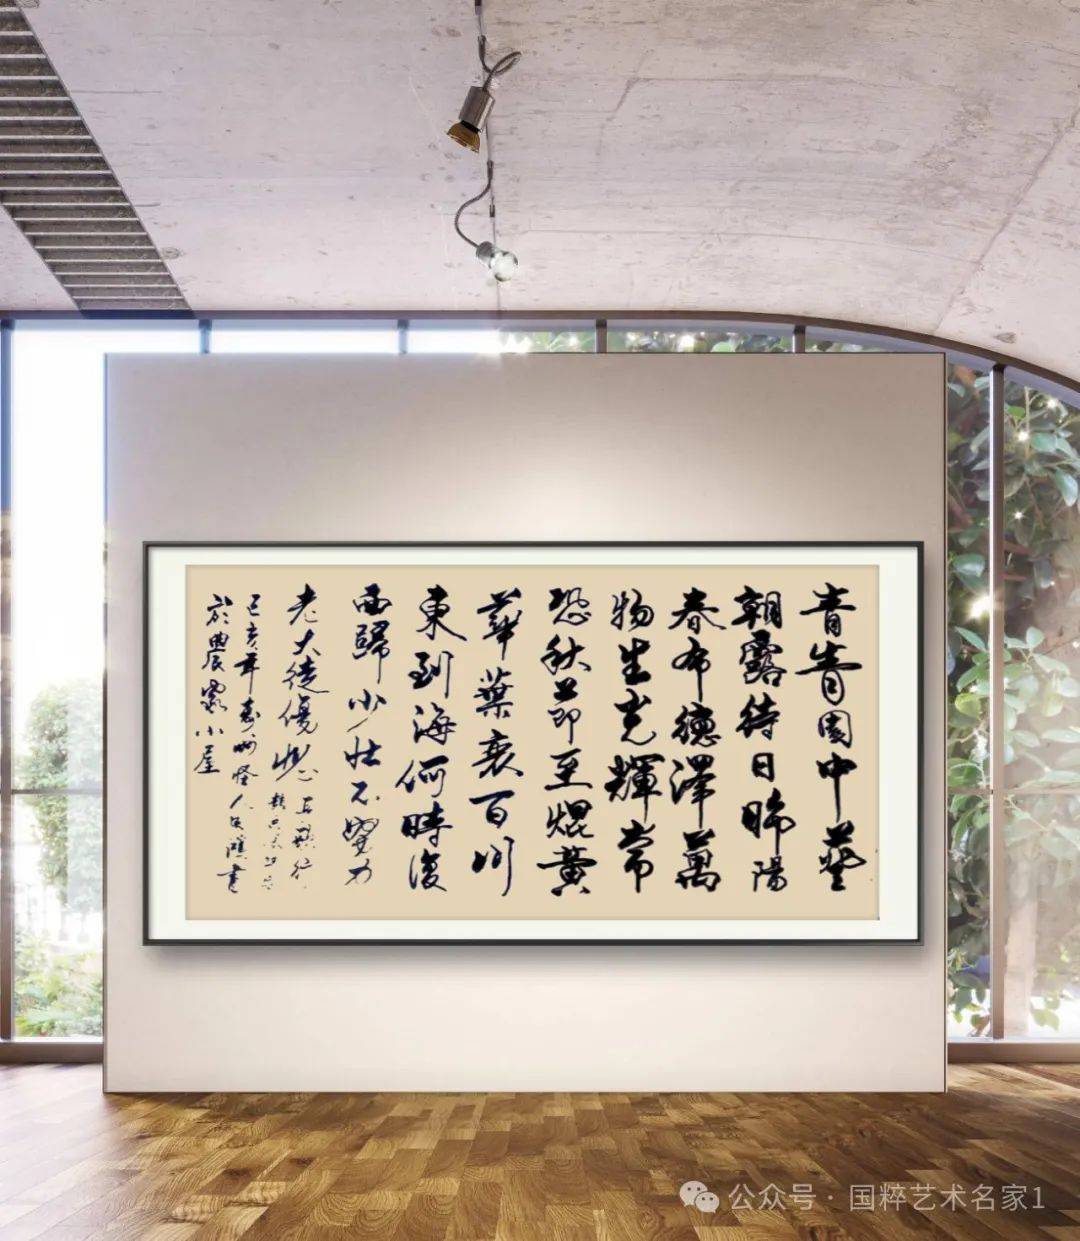 青青園中葵
朝露待日晞陽
春布德澤萬
物生光輝常
恐秋節至焜黃
華葉衰百川
東到海何時復
西歸少壯不努力
老大徒傷悲
己亥年怪人書
於農家小屋
公众号 · 国粹艺术名家1